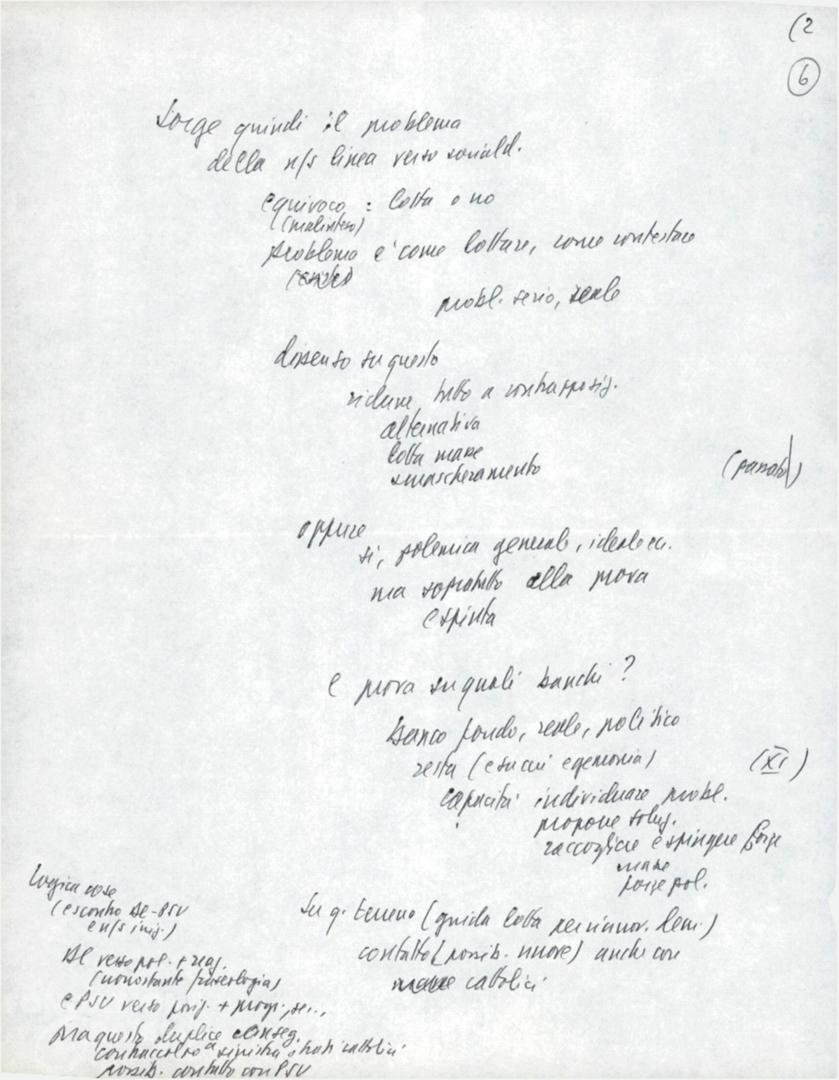 (2
6
Sorge quindi il problema
della n/s linea verso sociald.
equivoco : lotta o no
(malinteso)
problema è come lottare, come contestare
probl. serio, reale
dissenso su questo
ridurre tutto a contrapposiz.
alternativa
lotta masse
smascheramento
(passato)
oppure
si, polemica generale, ideale ecc.
ma sopratutto alla prova
e spinta
e prova su quali banchi?
banco fondo, reale, politico
resta (e su cui egemonia)
(XI)
capacità individuare probl.
proporre soluz.
raccogliere e spingere forze
masse
forze pol.
Su q. terreno (guida lotta per rinnov. dem.)
contatto (possib. nuove) anche con
masse cattolici
Logica cose
(e scontro DC-PSU
e n/s iniz.)
DC verso pol. + reaz.
(nonostante fraseologia)
e PSU verso posiz. + progr.
Ma questo duplice conseg.
contraccolpo a sinistra strati cattolici
possib. contatto con PSU